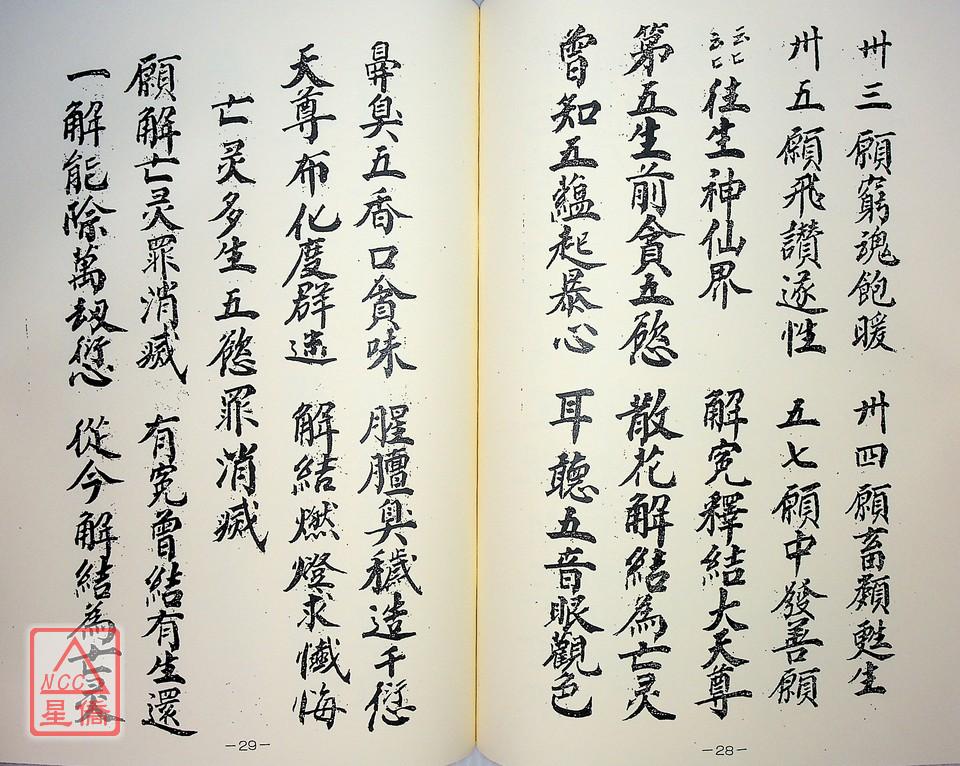 卅三願窮魂飽暖 卅四願畜類甦生
卅五願飛讚遂性 五七願中發善願
云云匕匕往生神仙界 解冤釋結大天尊
第五生前貪五慾 散花解結為亡灵
曾知五蘊起暴心 耳聽五音眼觀色
-28-
鼻臭五香口貪味 腥膻臭穢造千愆
天尊布化度群迷 解結燃燈求懺悔
亡灵多生五慾罪消滅
願解亡灵罪消滅 有冤曾結有生還
一解能除萬劫愆 從今解結為亡灵
-29-
NCC
星僑